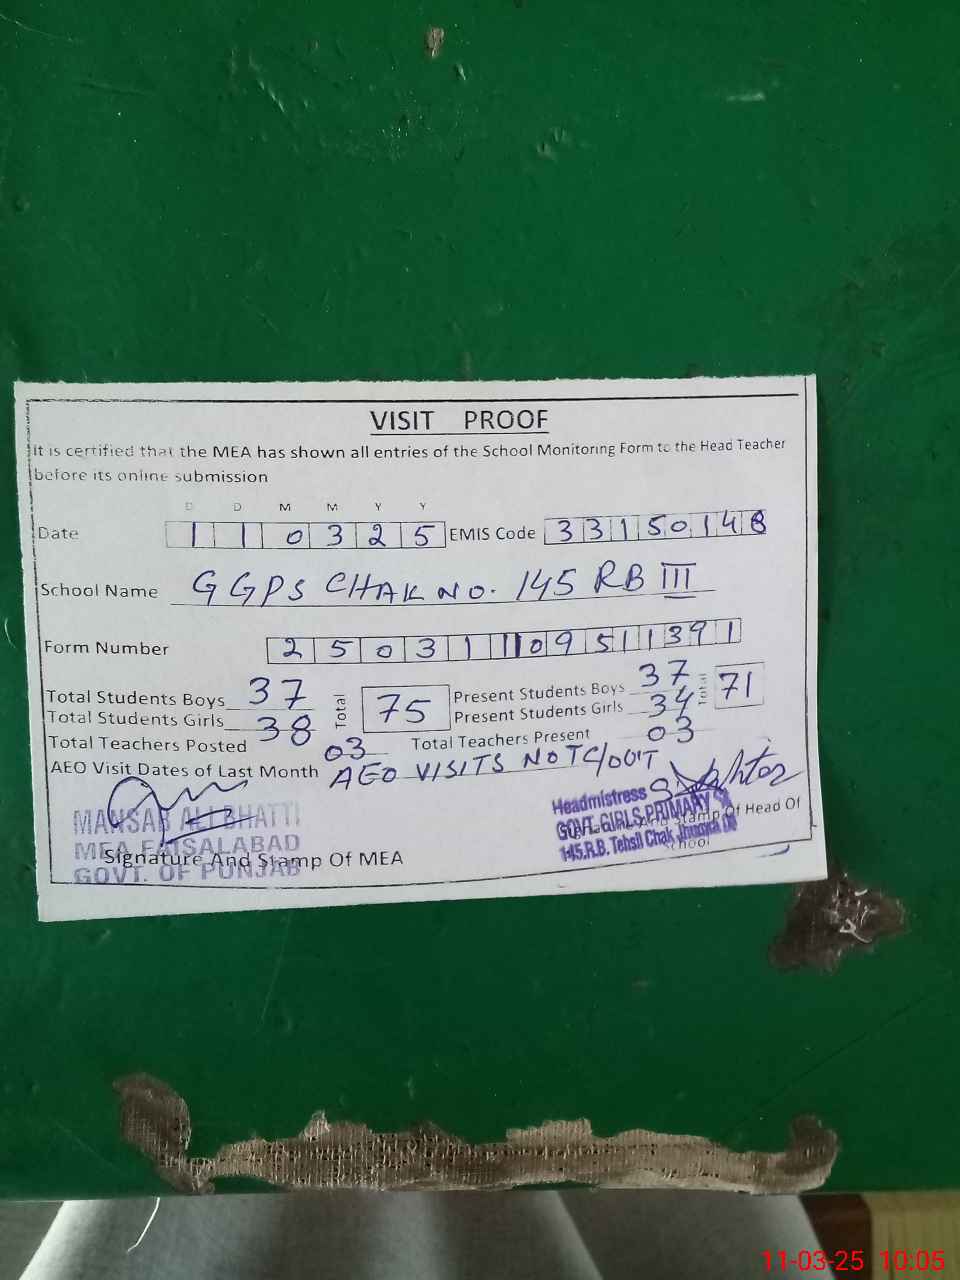 VISIT PROOF
It is certified that the MEA has shown all entries of the School Monitoring Form to the Head Teacher
before its online submission
D D M M Y Y
Date 1 1 0 3 2 5 EMIS Code 3 3 1 5 0 1 4 8
School Name GGPS CHAK NO. 145 RB III
Form Number 2 5 0 3 1 1 0 9 5 1 1 3 9 1
Total Students Boys 37 Total 75 Present Students Boys 37 Total 71
Total Students Girls 38 Present Students Girls 34
Total Teachers Posted 03 Total Teachers Present 03
AEO Visit Dates of Last Month AEO VISITS NOT C/OUT
MANSAB ALI BHATTI
MEA FAISALABAD
GOVT. OF PUNJAB
Signature And Stamp Of MEA
Headmistress
GOVT. GIRLS PRIMARY
145.R.B. Tehsil Chak Jhumra
And Stamp Of Head Of
School
11-03-25 10:05